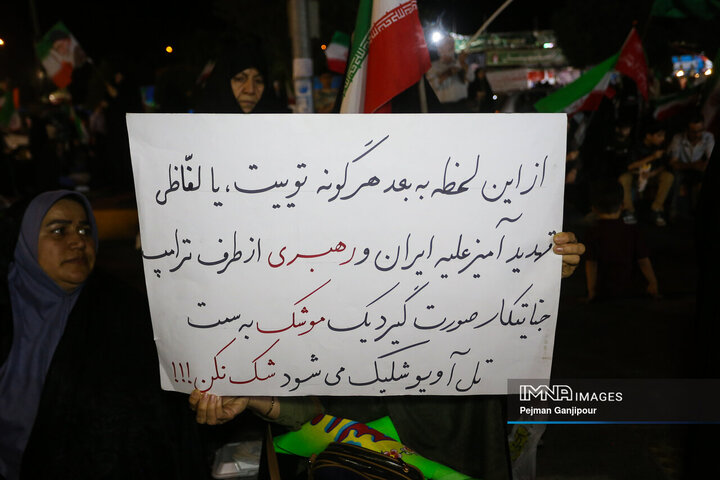 از این لحظه به بعد هرگونه توییت، یا لفّاظی
تهدید آمیز علیه ایران و رهبری از طرف ترامپ
جنایتکار صورت گیرد یک موشک به سمت
تل آویو شلیک می شود شک نکن!!!
IMNA IMAGES
Pejman Ganjipour